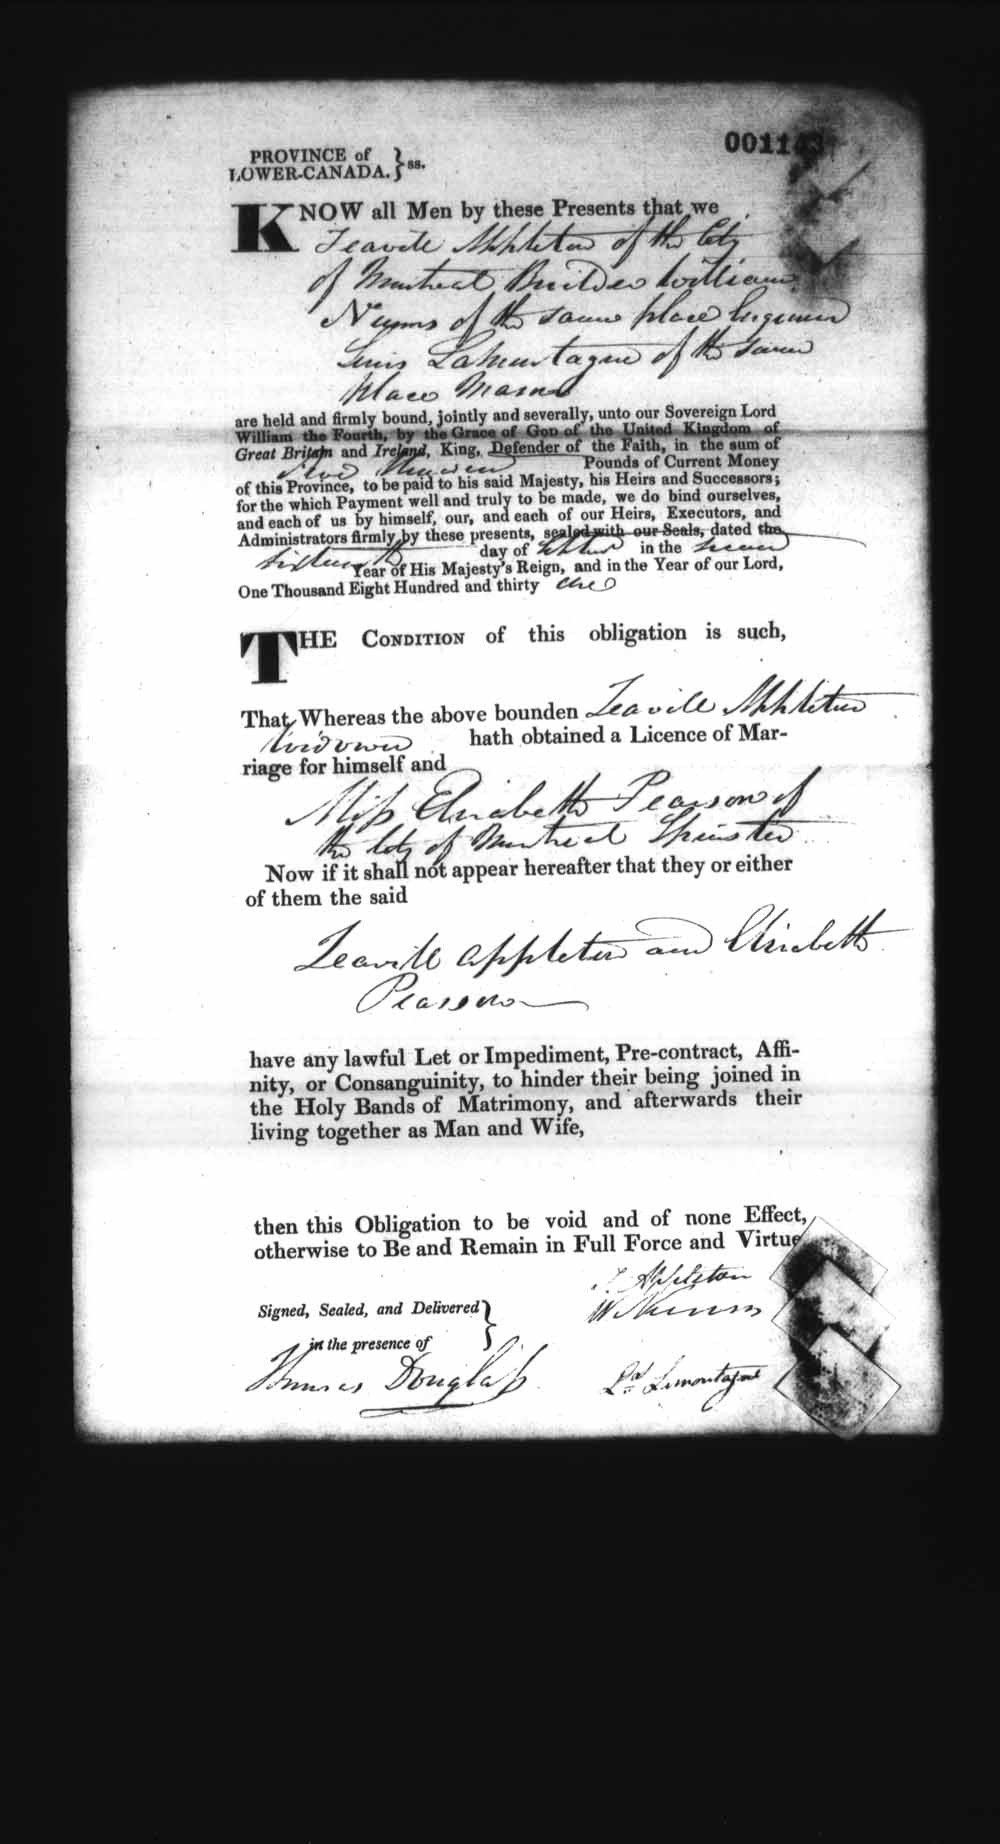 001143
PROVINCE of
LOWER-CANADA. } ss.
KNOW all Men by these Presents that we
Teavill Appleton of the City
of Montreal Builder William
Nunns of the same place
Louis Lamontagne of the same
place Mason
are held and firmly bound, jointly and severally, unto our Sovereign Lord
William the Fourth, by the Grace of God of the United Kingdom of
Great Britain and Ireland, King, Defender of the Faith, in the sum of
Two Hundred Pounds of Current Money
of this Province, to be paid to his said Majesty, his Heirs and Successors;
for the which Payment well and truly to be made, we do bind ourselves,
and each of us by himself, our, and each of our Heirs, Executors, and
Administrators firmly by these presents, sealed with our Seals, dated the
day of in the second
Year of His Majesty's Reign, and in the Year of our Lord,
One Thousand Eight Hundred and thirty one
THE CONDITION of this obligation is such,
That Whereas the above bounden Teavill Appleton
Widower hath obtained a Licence of Mar-
riage for himself and
Miss Elizabeth Pearson of
the City of Montreal Spinster
Now if it shall not appear hereafter that they or either
of them the said
Teavill Appleton and Elizabeth
Pearson
have any lawful Let or Impediment, Pre-contract, Affi-
nity, or Consanguinity, to hinder their being joined in
the Holy Bands of Matrimony, and afterwards their
living together as Man and Wife,
then this Obligation to be void and of none Effect,
otherwise to Be and Remain in Full Force and Virtue
T. Appleton
Signed, Sealed, and Delivered }
W Nunns
in the presence of
Thomas Douglass
Ls Lamontagne